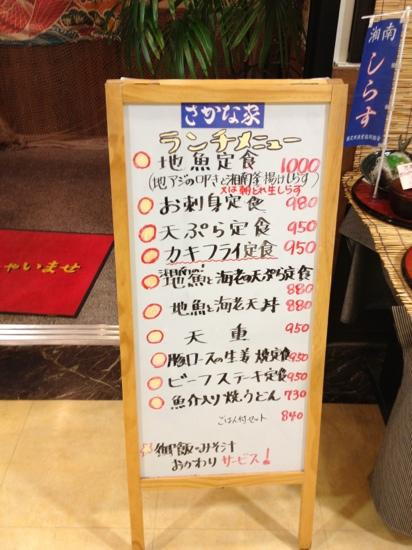 さかな家
ランチメニュー
地魚定食 1000
(地アジの叩きと湘南釜揚げしらす)
又は朝どれ生しらす
お刺身定食 980
天ぷら定食 950
カキフライ定食 950
湘南の!
地魚と海老の天ぷら定食 880
地魚と海老天丼 880
天重 950
豚ロースの生姜焼定食 950
ビーフステーキ定食 950
魚介入り焼うどん 730
ごはん付セット 840
御飯・みそ汁
おかわりサービス!
湘南
しらす
ゃいませ